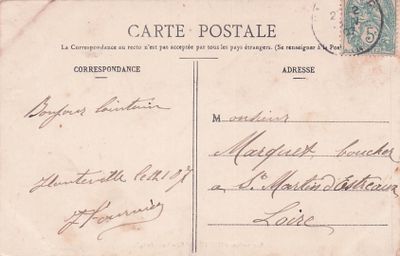 CARTE POSTALE
La Correspondance au recto n'est pas acceptée par tous les pays étrangers. (Se renseigner à la Post
CORRESPONDANCE
ADRESSE
Bonjour lointain
Hauteville le
Monsieur
Marquet boucher
a St Martin d'Estreaux
Loire
5c